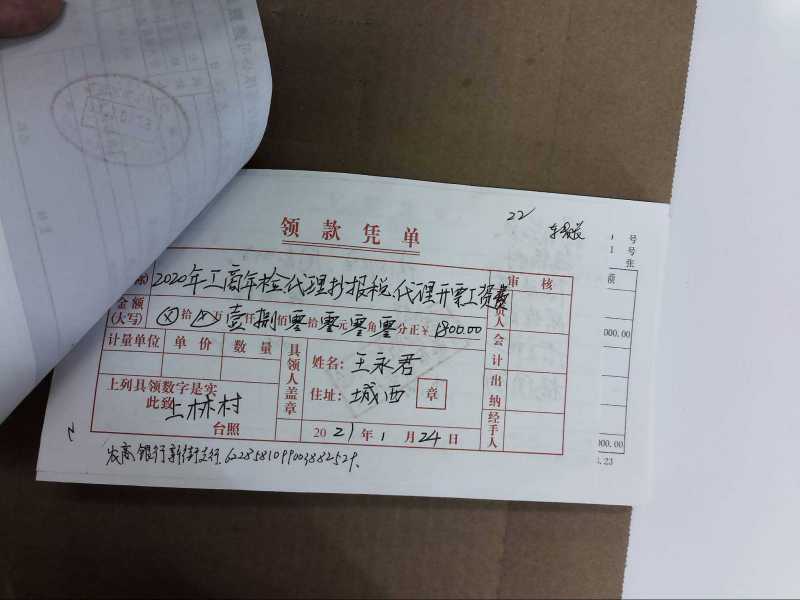 22
领款凭单
2020年工商年检代理抄报税.代理开票工资费
审核
金额
(大写)
拾 万 仟 佰 拾 元 角 分正¥
壹 捌 零 零 零 零
1800.00
计量单位 单价 数量
具领人盖章
姓名: 王永君
住址: 城西 章
会计
出纳
经手人
上列具领数字是实
此致 上林村
台照
2021年1月24日
农商银行新街支行.6228581099003882529.
号
号
张
额
000.00
000.00
.23